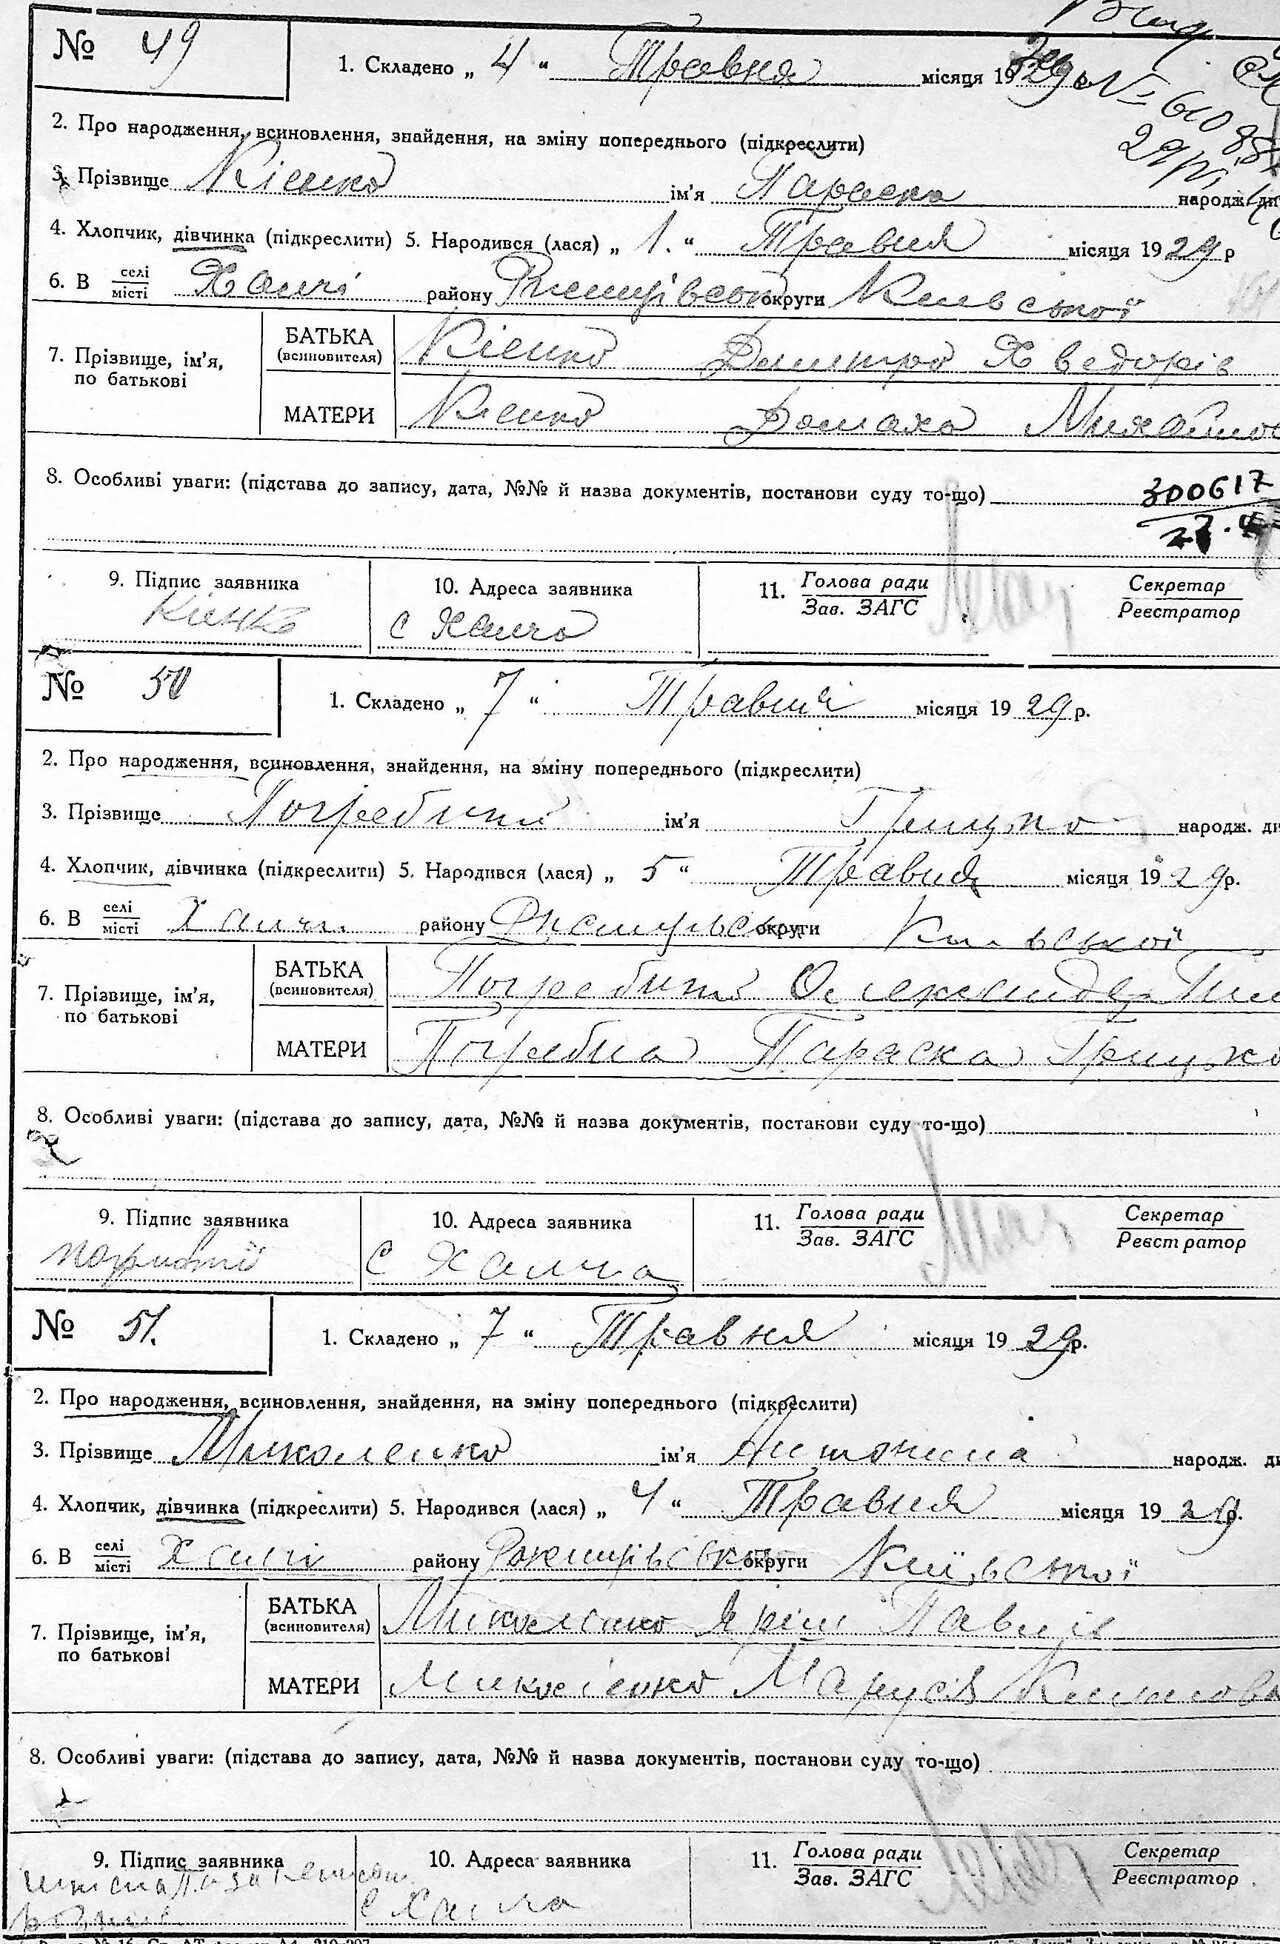 № 49
1. Складено „ 4 “ Травня місяця 1929 р.
№ 61088
2. Про народження, всиновлення, знайдення, на зміну попереднього (підкреслити)
3. Прізвище Кієнко ім'я Параска народж. ди
4. Хлопчик, дівчинка (підкреслити) 5. Народився (лася) „ 1. “ Травня місяця 1929 р
6. В селі/місті Халчі району округи Київської
7. Прізвище, ім'я, по батькові
БАТЬКА (всиновителя) Кієнко Дмитро Хведорів
МАТЕРИ Кієнко Домаха Михайлов
8. Особливі уваги: (підстава до запису, дата, №№ й назва документів, постанови суду то-що)
300617
9. Підпис заявника 10. Адреса заявника 11. Голова ради/Зав. ЗАГС Секретар/Реєстратор
Кієнко с Халча
№ 50
1. Складено „ 7 “ Травня місяця 1929 р.
2. Про народження, всиновлення, знайдення, на зміну попереднього (підкреслити)
3. Прізвище Погребний ім'я Грицько народж. ди
4. Хлопчик, дівчинка (підкреслити) 5. Народився (лася) „ 5 “ Травня місяця 1929 р.
6. В селі/місті Халчі району округи Київської
7. Прізвище, ім'я, по батькові
БАТЬКА (всиновителя) Погребний Олександер
МАТЕРИ Погребна Параска Грицько
8. Особливі уваги: (підстава до запису, дата, №№ й назва документів, постанови суду то-що)
9. Підпис заявника 10. Адреса заявника 11. Голова ради/Зав. ЗАГС Секретар/Реєстратор
с Халча
№ 51.
1. Складено „ 7 “ Травня місяця 1929 р.
2. Про народження, всиновлення, знайдення, на зміну попереднього (підкреслити)
3. Прізвище Миколенко ім'я Антонина народж. ди
4. Хлопчик, дівчинка (підкреслити) 5. Народився (лася) „ 4 “ Травня місяця 1929 р.
6. В селі/місті Халчі району округи Київської
7. Прізвище, ім'я, по батькові
БАТЬКА (всиновителя) Миколенко Ярим Павлів
МАТЕРИ Миколенко Маруся
8. Особливі уваги: (підстава до запису, дата, №№ й назва документів, постанови суду то-що)
9. Підпис заявника 10. Адреса заявника 11. Голова ради/Зав. ЗАГС Секретар/Реєстратор
с Халча